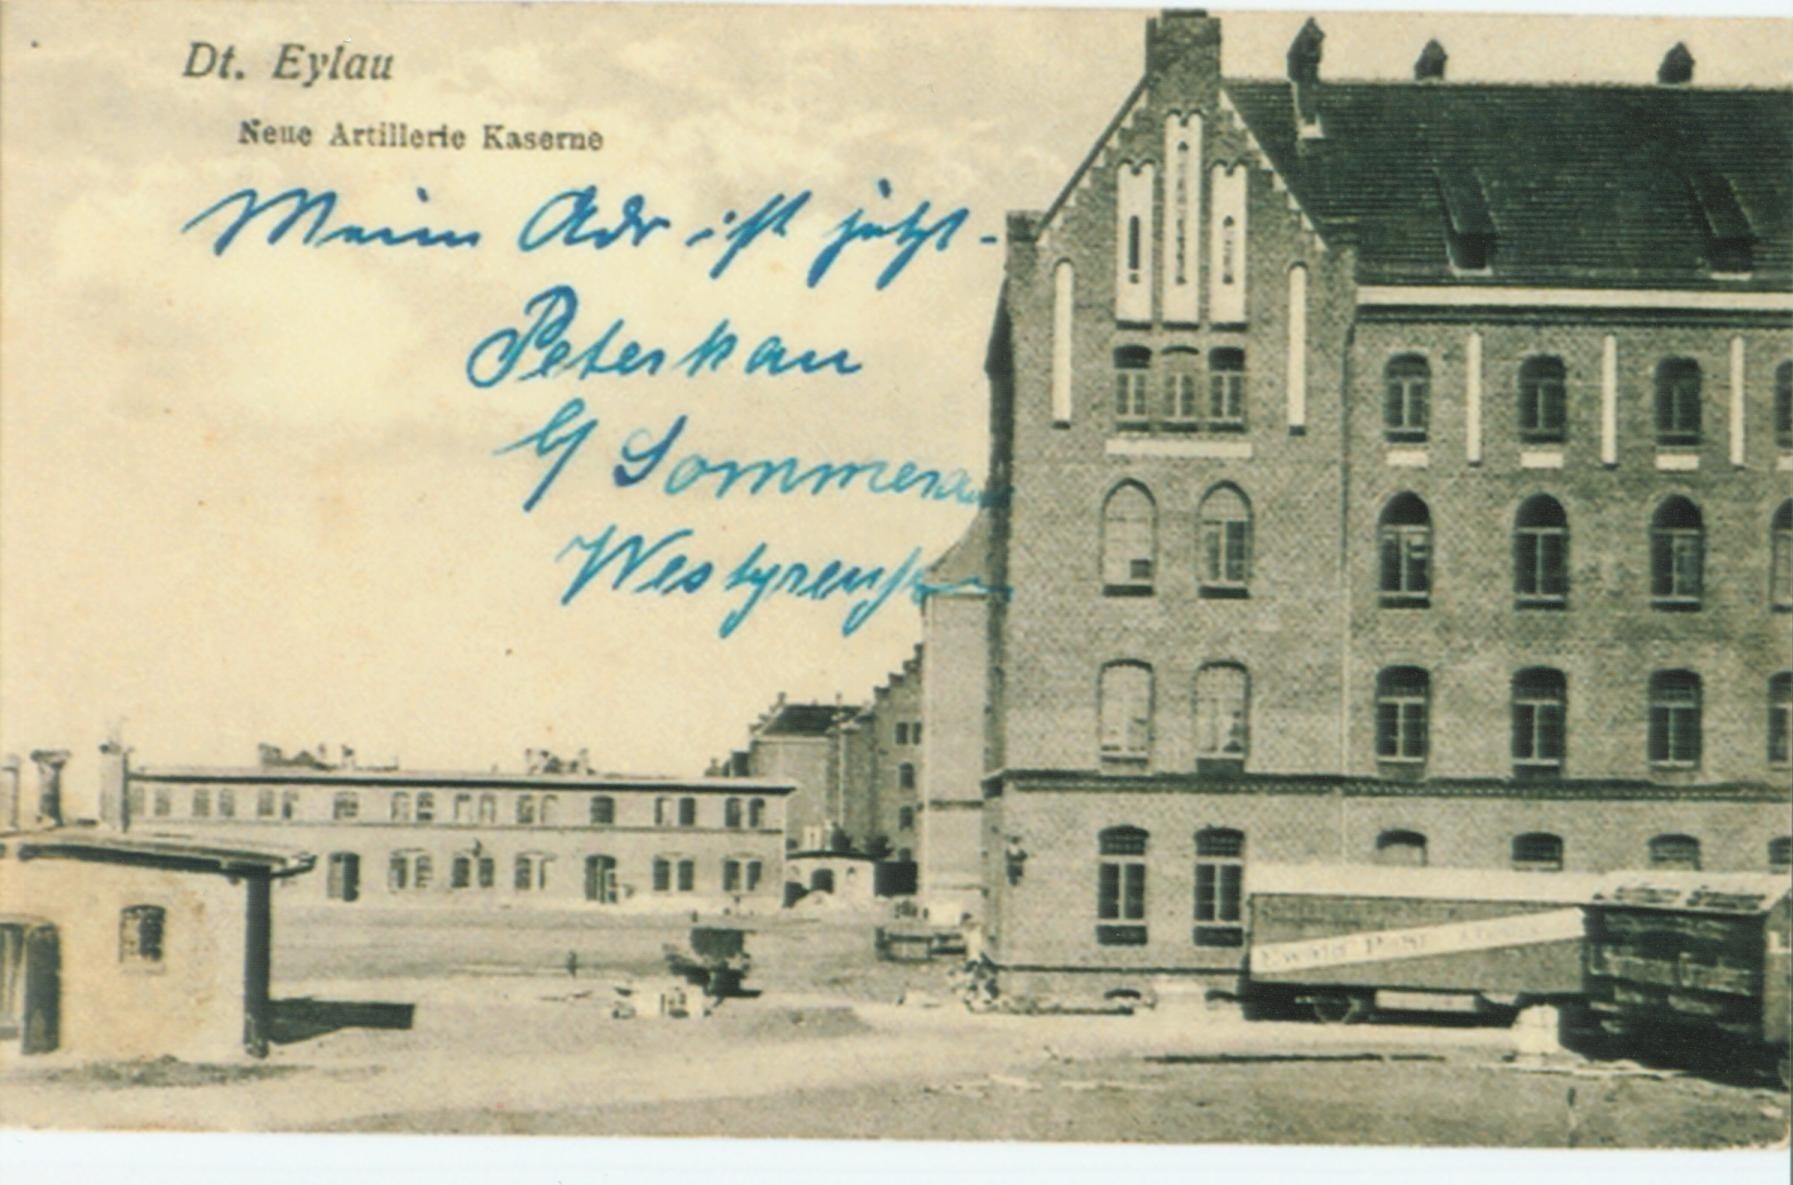 Dt. Eylau
Neue Artillerie Kaserne
Meine Adr ist jetzt -
Peterkau
b/ Sommerau
Westpreußen